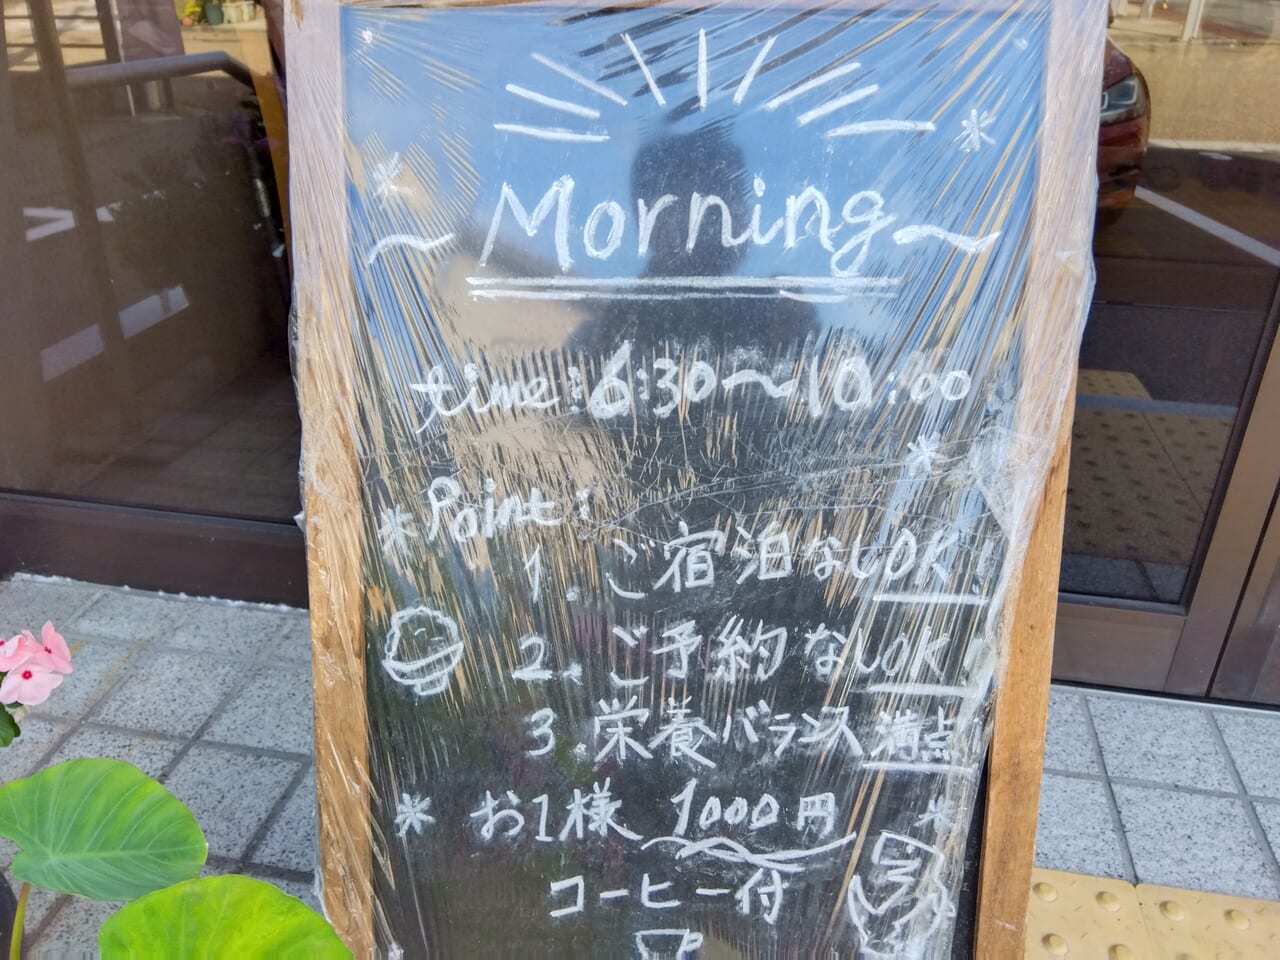 ~Morning~
time:6:30~10:00
Point:
1. ご宿泊なしOK!
2. ご予約なしOK!
3. 栄養バランス満点!
お1様 1000円
コーヒー付